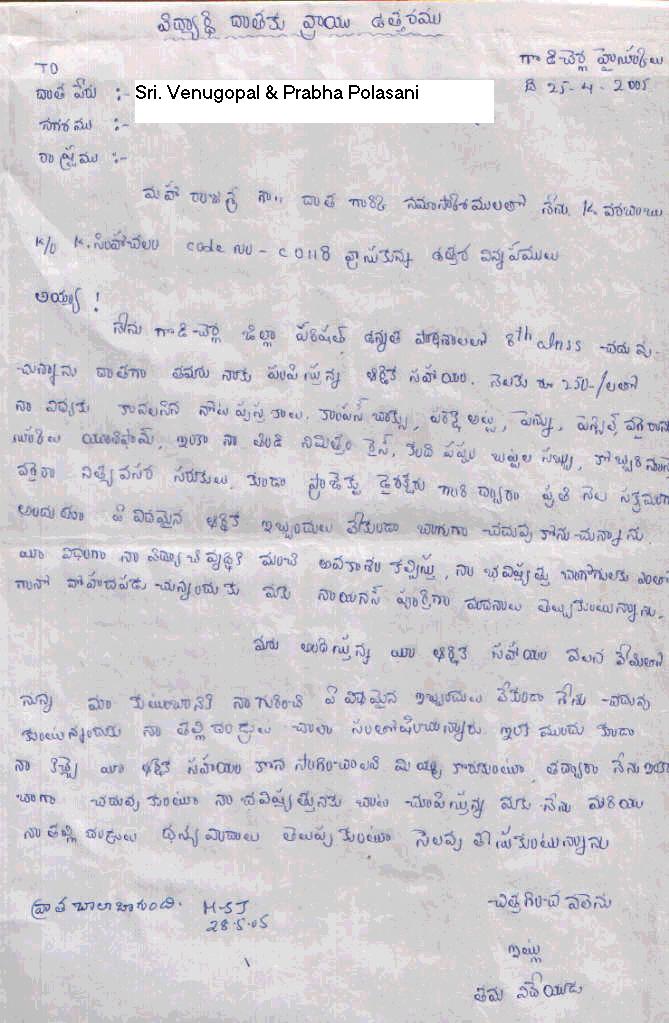 విద్యార్థి దాతకు వ్రాయు ఉత్తరము
గాదిచెర్ల
TO ది 25-4-2005
దాత పేరు :- Sri. Venugopal & Prabha Polasani
నగరము :-
రాష్ట్రము :-
మహా రాజశ్రీ గా॥ దాత గారికి నేను K.
K. సింహాచలం code no - C0118 వ్రాసుకున్న ఉత్తర
అయ్యా !
నేను గాదిచెర్ల జిల్లా పరిషత్ ఉన్నత పాఠశాలలో 8th class చదువు
చున్నాను దాతగా తమరు నాకు పంపిస్తున్న ఆర్థిక సహాయం. నెలకు రూ 250-/లతో
నా విద్యకు కావలసిన నోటు పుస్తకాలు, కాంపస్ బాక్సు, పరీక్ష అట్ట, పెన్ను, పెన్సిల్, వగైరాలు
యూనిఫామ్, ఇంకా నా తిండి నిమిత్తం రైస్, కంది పప్పు బట్టల సబ్బు, కొబ్బరి నూనె
వగైరా నిత్యావసర సరుకులు, కూడా ప్రాజెక్టు డైరెక్టరు గారి ద్వారా ప్రతి నెల సక్రమంగా
అందుటచే ఏ విధమైన ఆర్థిక ఇబ్బందులు లేకుండా బాగుగా చదువు కొను చున్నాను.
యీ విధంగా నా విద్యాభివృద్ధికి మంచి అవకాశం కల్పిస్తూ, నా భవిష్యత్తు
మీకు నా
మీరు అందిస్తున్న యీ ఆర్థిక సహాయం వలన
నున్న మా కుటుంబానికి నా గురించి ఏ విధమైన ఇబ్బందులు లేకుండా నేను చదువు
కుంటున్నందుకు నా తల్లి దండ్రులు చాలా సంతోషించుచున్నారు. ఇలాగే ముందు కూడా
నా కిచ్చే యీ ఆర్థిక సహాయం కొన సాగించాలని మిమ్మల్ని కోరుకుంటూ, తద్వారా నేను ఇంకా
బాగా చదువుకుంటూ నా భవిష్యత్తునకు బాట చూపిస్తున్న మీకు నేను మరియు
నా తల్లి దండ్రులు ధన్యవాదాలు తెలుపుకుంటూ సెలవు తీసుకుంటున్నాను
వ్రాత చాలా బాగుంది. చిత్తగించ వలెను
28-5-05
ఇట్లు
తమ విధేయుడు